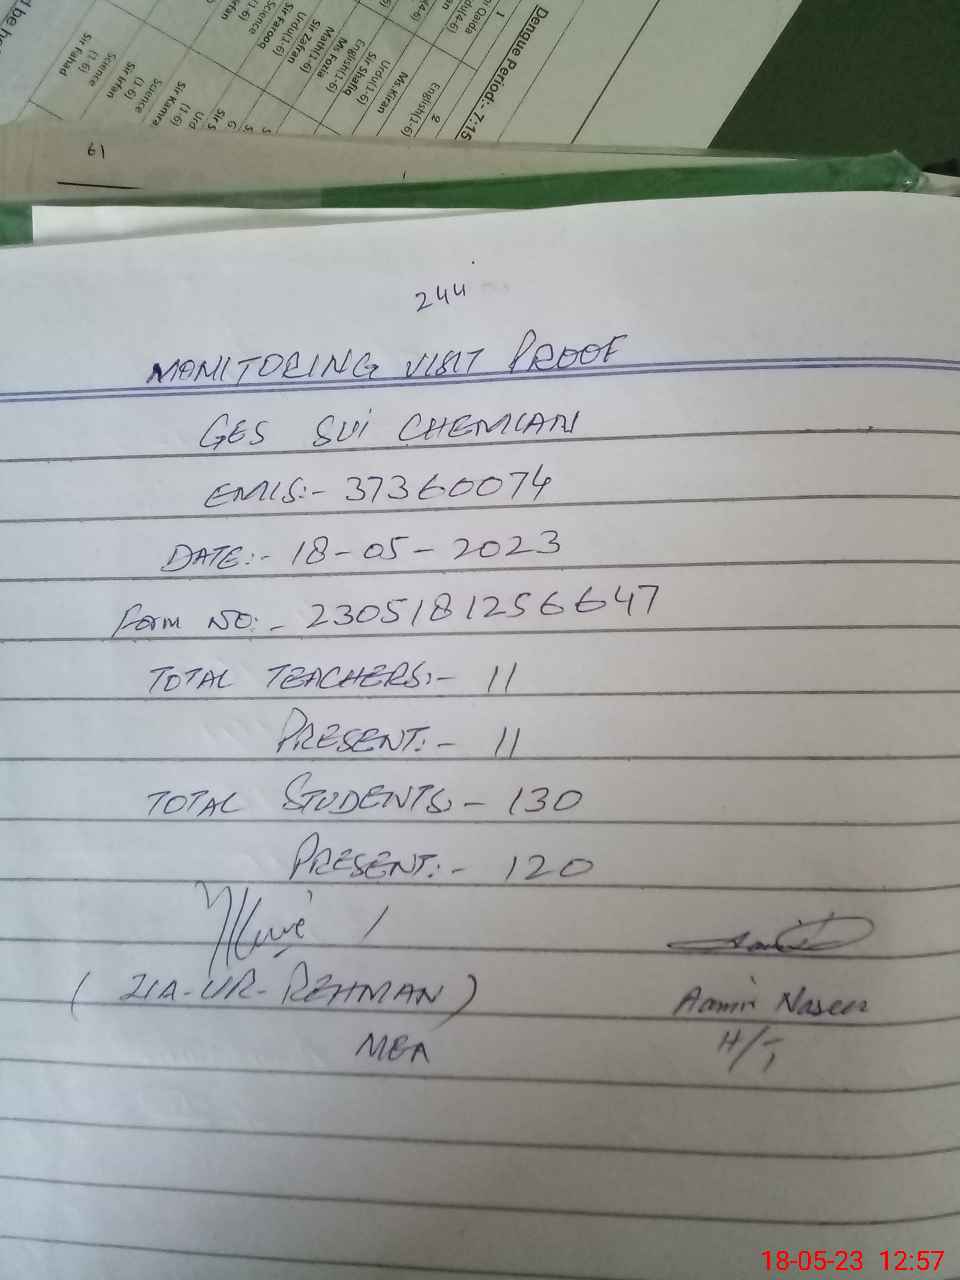 Dengue Period:- 7:15
1
2
Qaida
Urdu(4-6)
English(1-6)
Ms.Kiran
Urdu(1-6)
Sir Shafiq
English(1-6)
Ms Fozia
Math(1-6)
Sir Zafran
Urdu(1-6)
Sir Farooq
Science
(1-6)
Sir Kamra
Science
(1-6)
Sir Irfan
Science
(1-6)
Sir Fahad
61
244
MONITORING VISIT PROOF
GES SUI CHEMIAN
EMIS:- 37360074
DATE:- 18-05-2023
Form NO:- 2305181256647
TOTAL TEACHERS:- 11
PRESENT:- 11
TOTAL STUDENTS- 130
PRESENT:- 120
(ZIA-UR-REHMAN)
Aamir Naseer
MEA
H/T
18-05-23 12:57